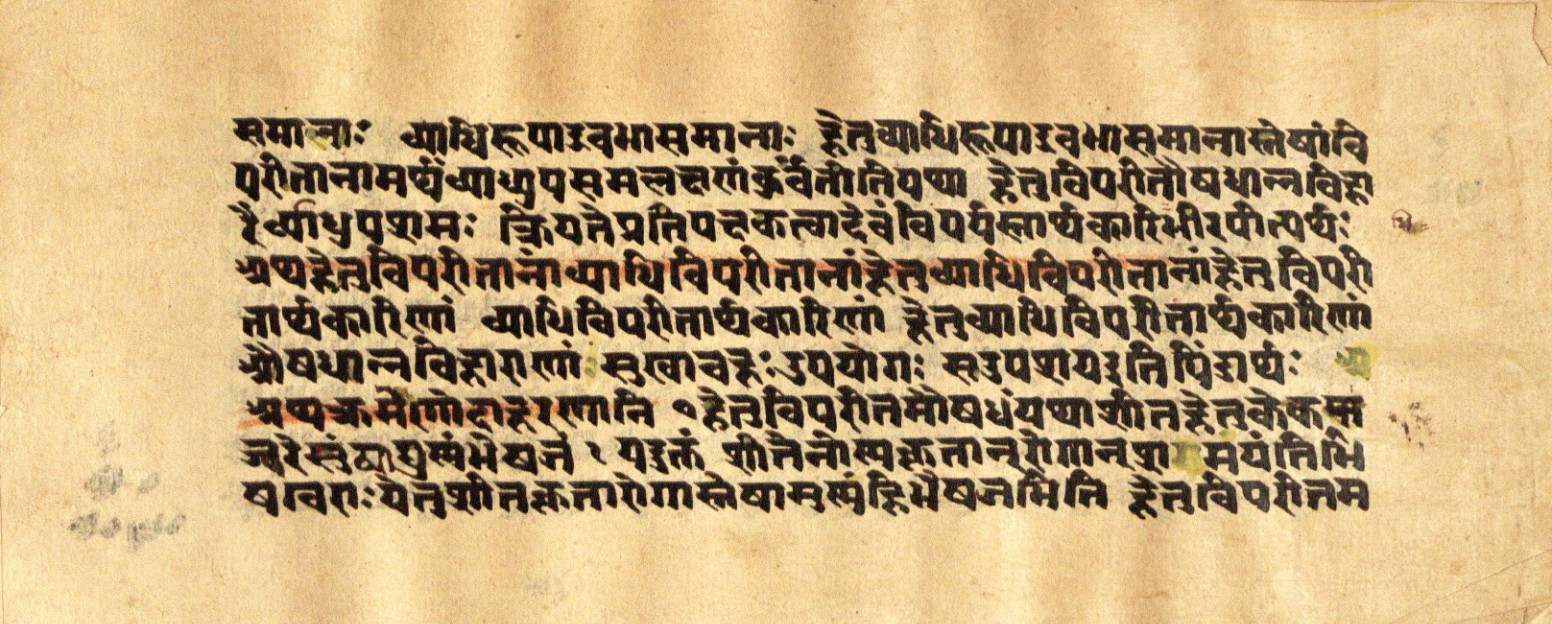 समानाः व्याधिरूपाइवभासमानाः हेतुव्याधिरूपाइवभासमानास्तेषांवि
परीतानामर्थंव्याध्युपसमलक्षणंकुर्वंतीतिपथ्या हेतुविपरीतौषधान्नविहा
रैर्व्याध्युपशमः क्रियतेप्रतिपक्षकत्वादेवंविपर्यस्तार्थकारिभीरपीत्यर्थः
अथहेतुविपरीतानांव्याधिविपरीतानांहेतुव्याधिविपरीतानांहेतुविपरी
तार्थकारिणां व्याधिविपरीतार्थकारिणां हेतुव्याधिविपरीतार्थकारिणां
औषधान्नविहाराणां सुखावहः उपयोगः सउपशयइतिपिंडार्थः
अथक्रमेणोदाहरणानि १हेतुविपरीतमौषधंयथाशीतहेतुकेकफ
ज्वरेसुंठ्याद्युष्णंभेषजं १ यदुक्तं शीतेनोष्णकृतान्रोगान्शमयंतिभि
षग्विदः येतुशीतकृतारोगास्तेषामुष्णंहिभेषजमिति हेतुविपरीतम